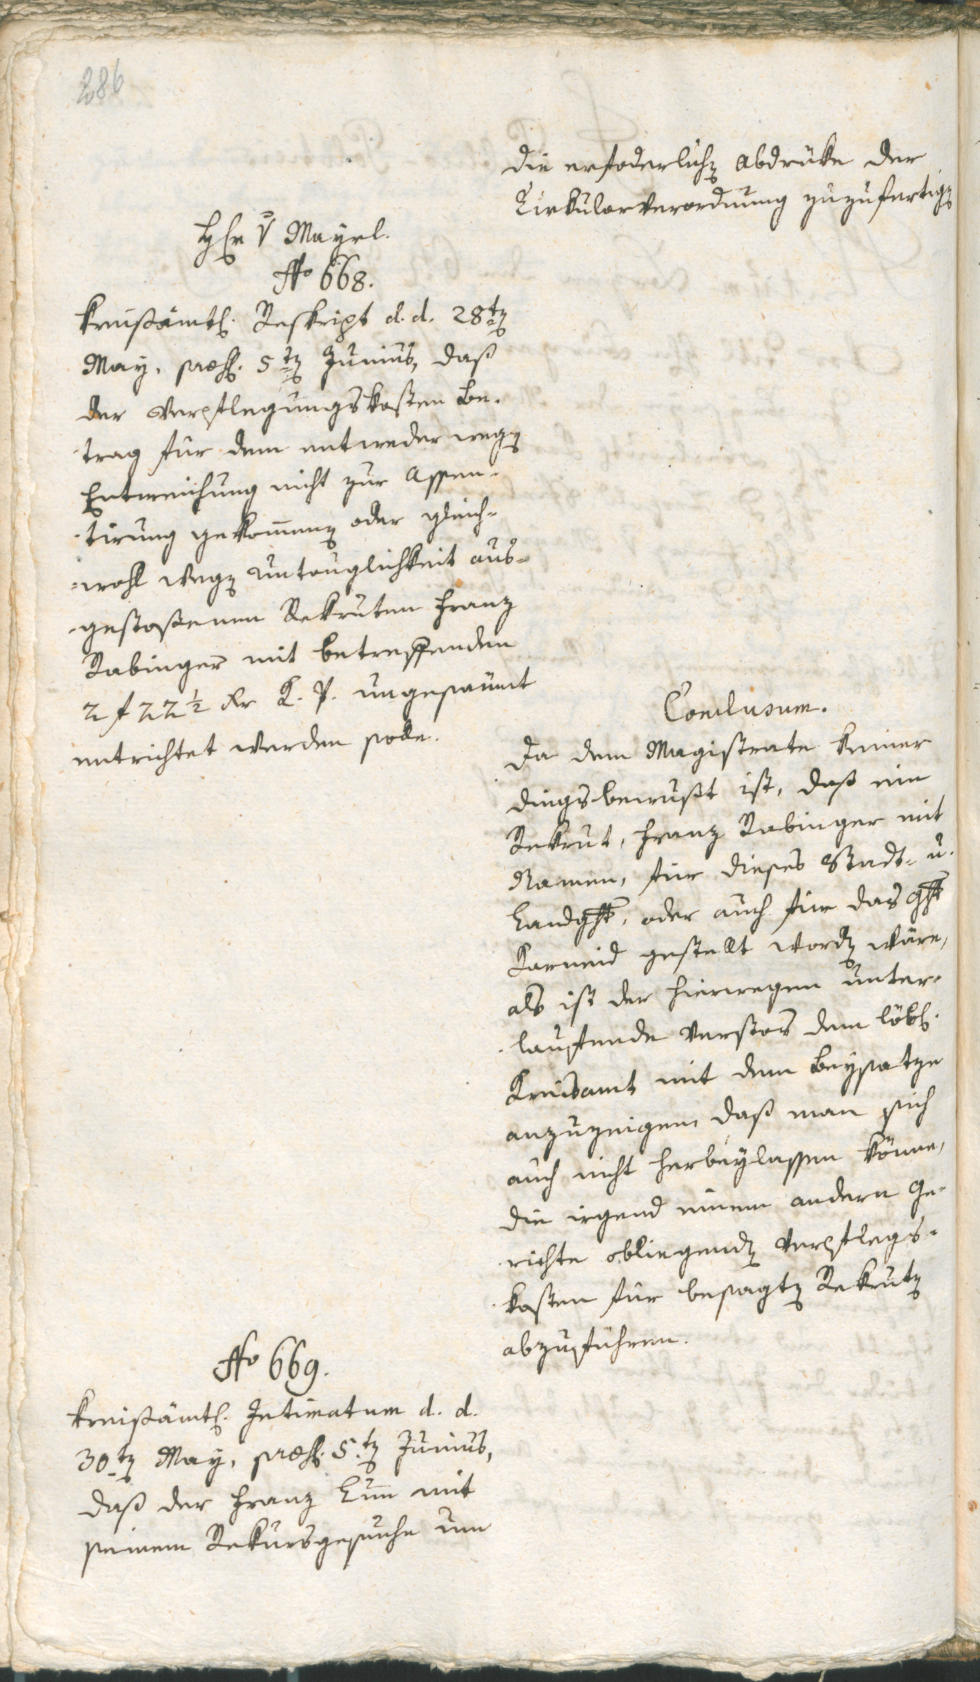 286
die erfoderlichen Abdrüke der
Cirkularverordnung zuzufertigen
Hr v Mayrl.
No 668.
Kreisämtl. Reskript d. d. 28ten
May, præs. 5ten Junius, daß
der Verpflegungskosten Be-
trag für dem entweder wegen
Entweichung nicht zur Assen-
tirung gekommenen oder gleich-
wohl wegen Untauglichkeit aus-
gestossenen Rekruten Franz
Rabinger mit betreffenden
2 f 22 ½ kr K. P. ungesäumt
entrichtet werden solle.
Conclusum.
Da dem Magistrate keiner
dings bewußt ist, daß ein
Rekrut, Franz Rabinger mit
Namen, für dieses Stadt- u.
Landght, oder auch für das Ght
Karneid gestellt worden wäre,
als ist der hierwegen unter-
lauffende Verstos dem löbl.
Kreisamt mit dem Beysatze
anzuzeigen, daß man sich
auch nicht herbeylassen könne,
die irgend einem andern Ge-
richte obliegenden Verpflegs-
kosten für besagten Rekruten
abzuführen.
No 669.
Kreisämtl. Intimatum d. d.
30ten May, præs. 5ten Junius,
daß der Franz Lun mit
seinem Rekursgesuche um